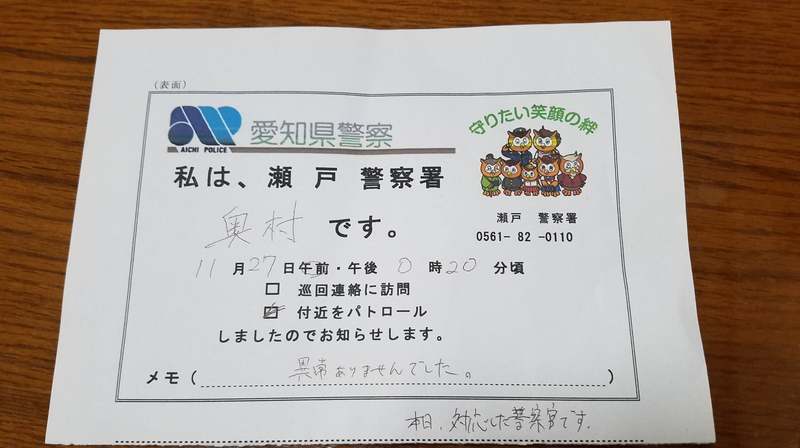 (表面)
AICHI POLICE
愛知県警察
守りたい笑顔の絆
私は、瀬 戸 警察署
瀬戸 警察署
0561- 82 -0110
奥村 です。
11 月 27 日午前・午後 0 時 20 分頃
□ 巡回連絡に訪問
☑ 付近をパトロール
しましたのでお知らせします。
メモ( 異常ありませんでした。 )
本日、対応した警察官です。